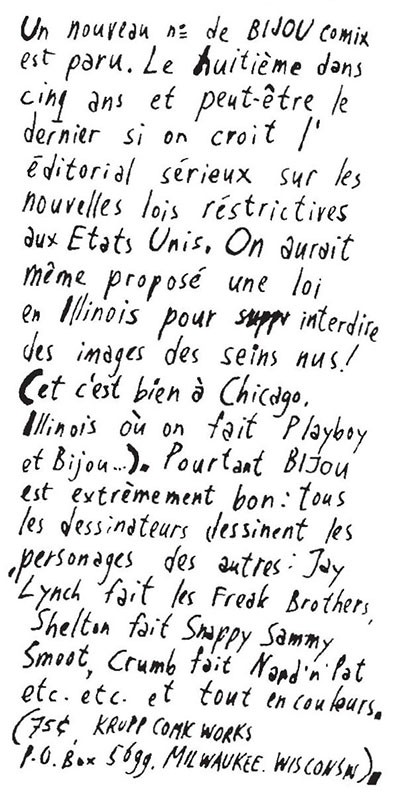 Un nouveau nº de BIJOU comix
est paru. Le huitième dans
cinq ans et peut-être le
dernier si on croit l'
éditorial sérieux sur les
nouvelles lois réstrictives
aux Etats Unis. On aurait
même proposé une loi
en Illinois pour interdire
des images des seins nus!
(et c'est bien à Chicago.
Illinois où on fait Playboy
et Bijou...). Pourtant BIJOU
est extrèmement bon: tous
les dessinateurs dessinent les
personages des autres: Jay
Lynch fait les Freak Brothers,
Shelton fait Snappy Sammy
Smoot, Crumb fait Nard'n'Pat
etc. etc. et tout en couleurs.
(75¢, KRUPP COMIC WORKS
P.O. Box 5699. MILWAUKEE. WISCONSIN).